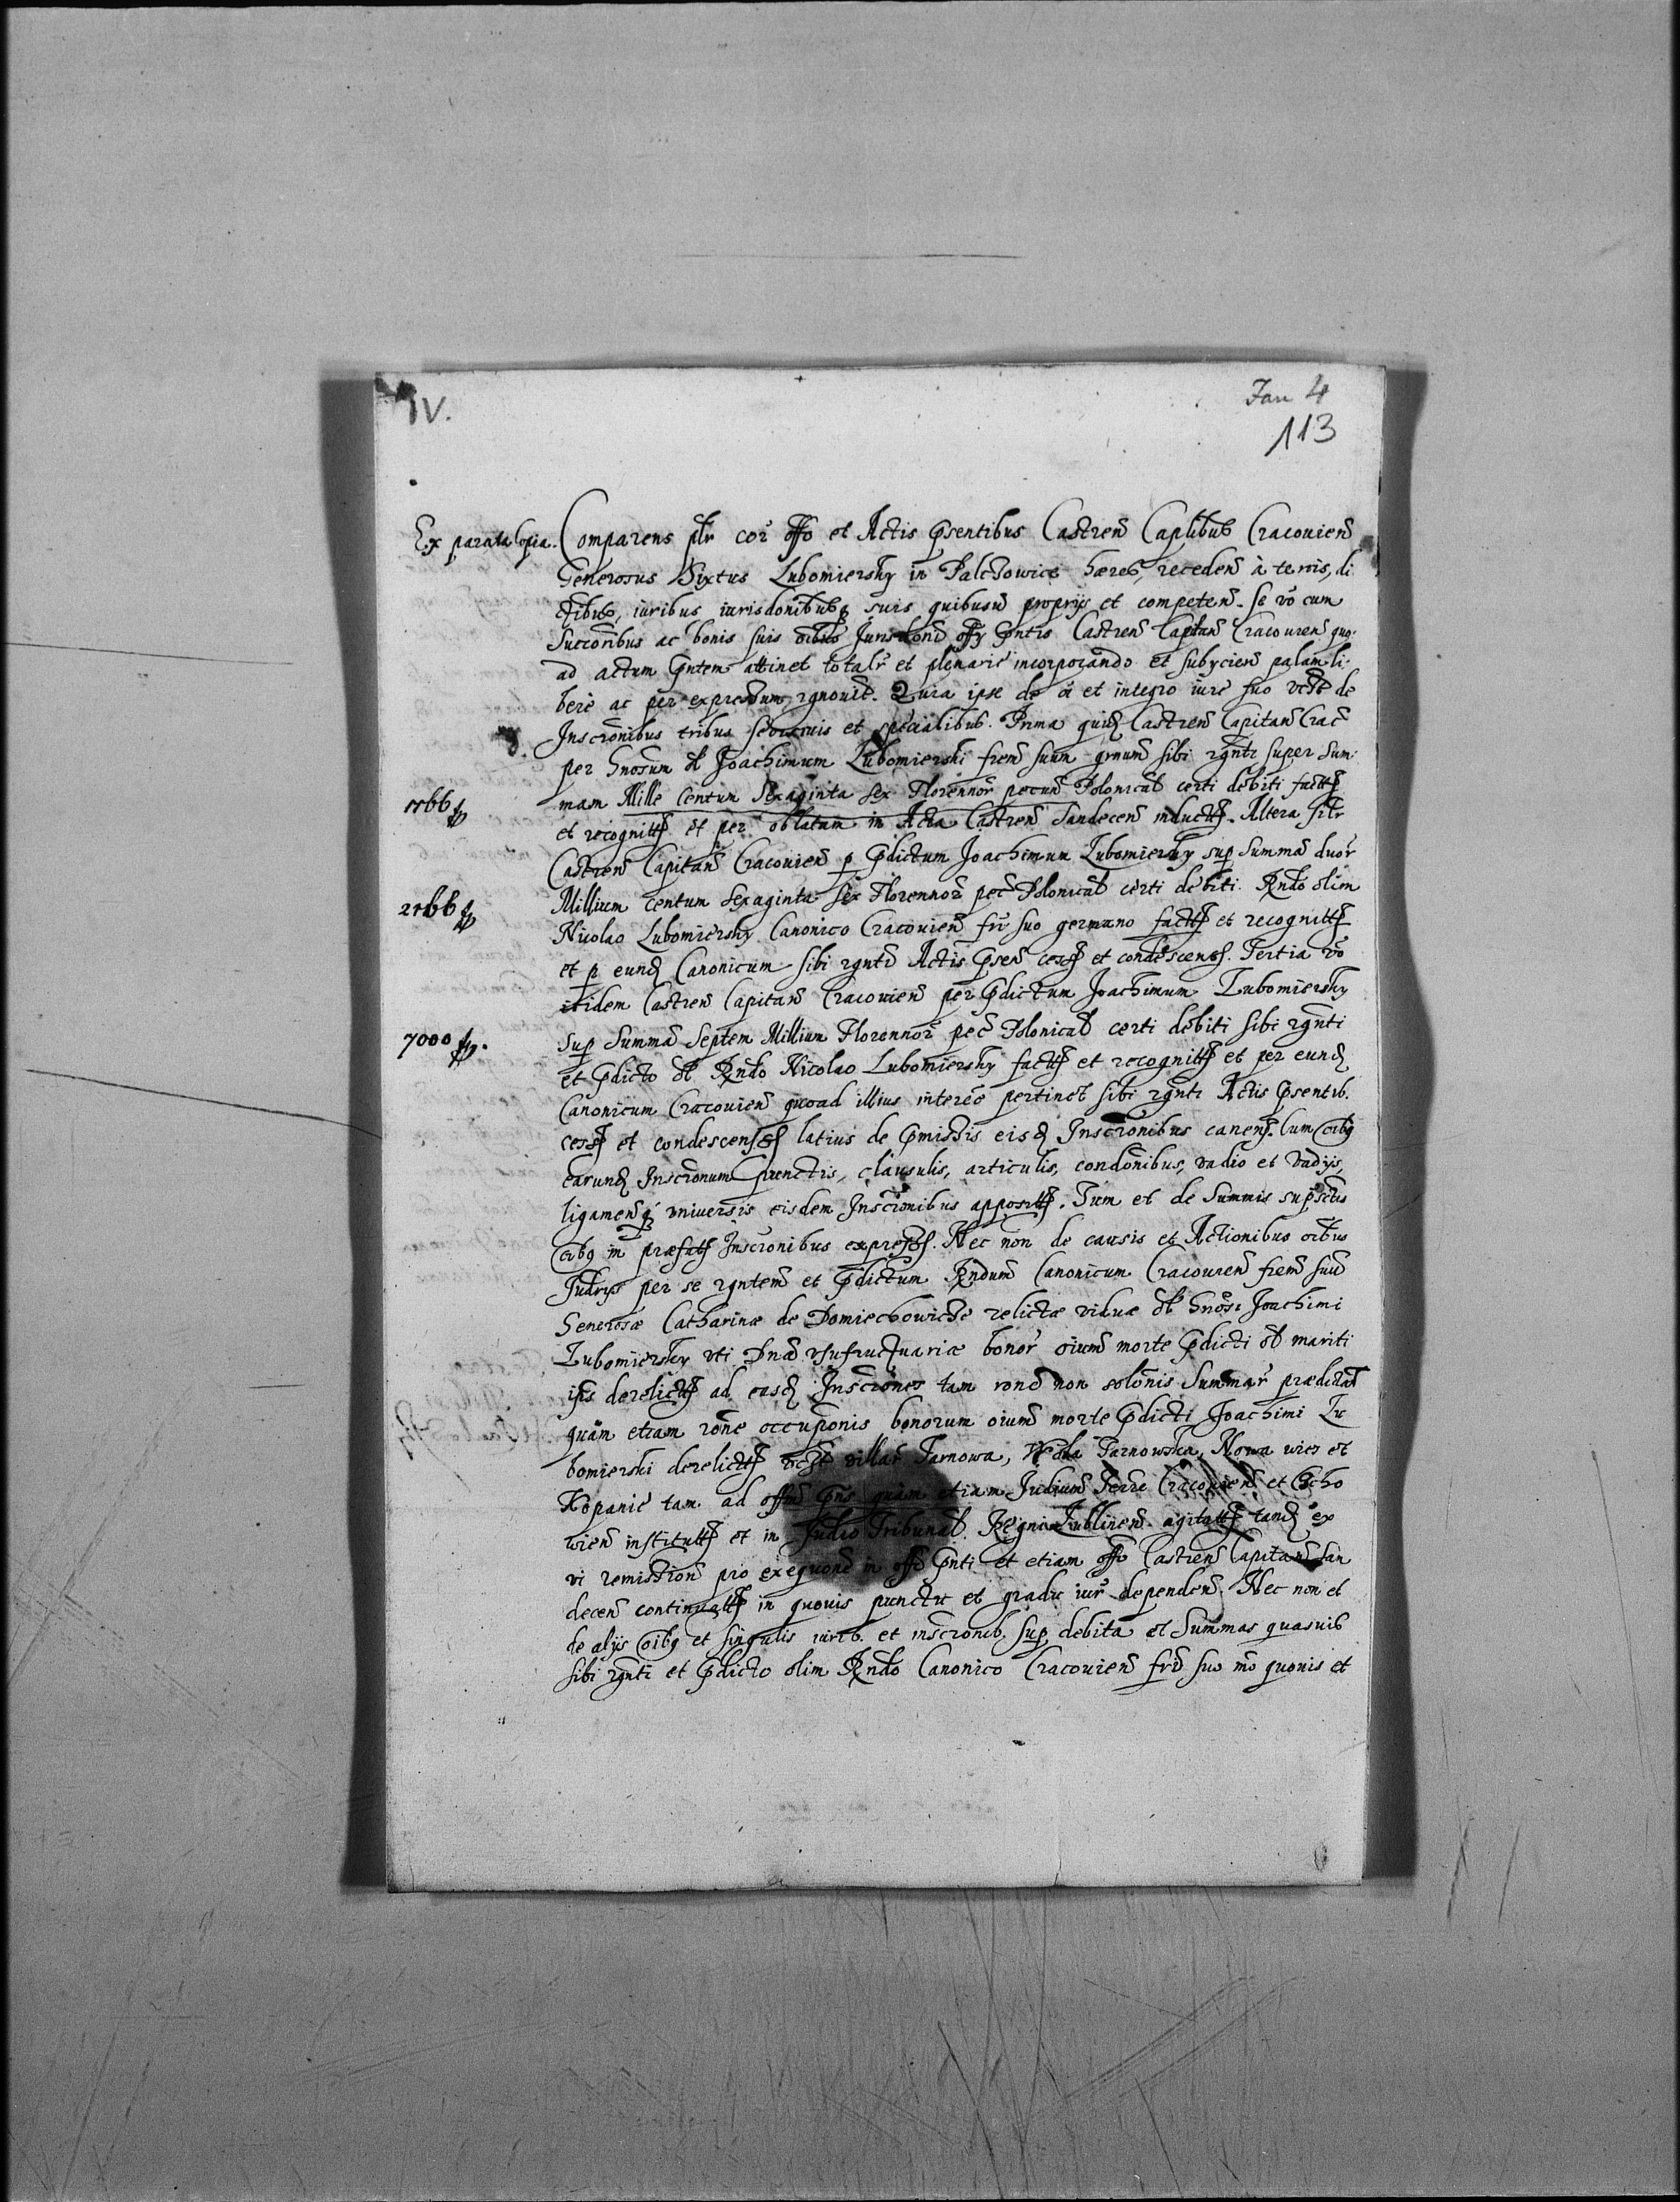 IV.
Jan 4
113
Ex parata Copia. Comparens plr cor offo et Actis Pnsentibus Castren Caplibus Cracouien
Generosus Sixtus Lubomiersky in Palchowice hæres, recedens à terris, di
ctibus, iuribus iurisdonibusq suis quibusuis proprijs et competen. Se vo cum
Succoribus ac bonis suis oibus Jurisdoni offy Pntis Castren Capitan Cracouien quo
ad actum Pntem attinet totalr et plenarie incorporando et subycien palam li
bere ac per expressum, rgnouit. Quia ipse de oi et integro iure suo vide de
Inscronibus tribus seorsiuis et specialibus. Prima quid Castren Capitan Crac
per Gnosum ol Joachimum Lubomierski frem suum grnum sibi rgnti super Sum
1166 fl
mam Mille Centum Sexaginta sex Florenor pecun Polonical certi debiti fact
et recognit et per oblatam in Acta Castren Sandecen induct. Altera silr
Castren Capitan Cracouien p Pdictum Joachimum Lubomiersky sup Summa duor
2166 fl
Millium Centum Sexaginta sex Florennor pec Polonical certi debiti Rndo olim
Nicolao Lubomiersky Canonico Cracouien fri suo germano fact et recognit
et p eund Canonicum sibi rgnti Actis Psen cess et condescens. Tertia vo
itidem Castren Capitan Cracouien per Pdictum Joachimum Lubomiersky
7000 fl.
sup Summa Septem Millium Florennor pec Polonical certi debiti sibi rgnti
et Pdicto ol Rndo Nicolao Lubomiersky fact et recognit et per eund
Canonicum Cracouien quoad illius interee pertinet sibi rgnti Actis Psentib.
cess et condescens latius de Pmissis eisd Inscronibus canen. Cum oibq
earund Inscronum punctis, clausulis, articulis, condonibus, vadio et vadijs,
ligamenq vniuersis eisdem Inscronibus apposit. Tum et de Summis supsctis
oibq in præfat Inscronibus express. Nec non de causis et Actionibus oibus
Judrijs per se rgntem et Pdictum Rndum Canonicum Cracouien frem suu
Generosæ Catharinæ de Domiechowicze relictæ viduæ ol Gnosi Joachimi
Lubomiersky vti Dnæ vsufructuariæ bonor oium morte Pdicti ol mariti
ipis derelict ad easd Inscrones tam rone non solonis Summar prædictar
quàm etiam rone occuponis bonorum oium morte Pdicti Joachimi Lu
bomierski derelict vide villar Tarnowa, Wola Tarnowska, Nowa wies et
Kopanie tam ad offm Pns quàm etiam Judium Terre Cracouien et Pcho
wien institut et in Judio Tribunal Regni Lublinen agitat tand ex
vi remission pro exequone in offo Pnti et etiam offo Castren Capitan San
decen continuat in quouis punctu et gradu iur dependen. Nec non et
de alijs oibq et singulis iurib. et inscronib. sup debita et Summas quasuis
sibi rgnti et Pdicto olim Rndo Canonico Cracouien fri suo mo quouis et